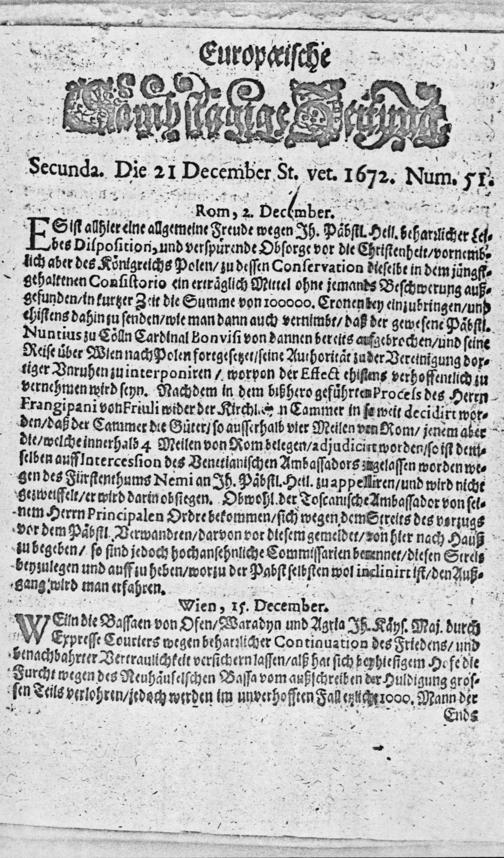 Europæische
Sambstägige Zeitung
Secunda. Die 21 December St. vet. 1672. Num. 51.
Rom, 2. December.
ES ist allhier eine allgemeine Freude wegen Jh. Päbstl. Heil. beharzlicher Lei-
bes Disposition, und verspürende Obsorge vor die Christenheit/vornemb-
lich aber des Königreichs Polen/zu dessen Conservation dieselbe in dem jüngst-
gehaltenen Consistorio ein erträglich Mittel ohne jemands Beschwerung auß-
gefunden/in kurtzer Zeit die Summe von 100000. Cronen bey einzubringen/und
ehistens dahin zu senden/wie man dann auch vernimbt/daß der gewesene Päbstl.
Nuntius zu Cölln Cardinal Bonvisi von dannen bereits aufgebrochen/und seine
Reise über Wien nach Polen fortgesetzet/seine Authorität zu der Vereinigung dor-
tiger Unruhen zu interponiren/worvon der Effect ehistens verhoffentlich zu
vernehmen wird seyn. Nachdem in dem bißhero geführten Process des Herrn
Frangipani von Friuli wider der Kirchl. Cammer in so weit decidirt wor-
den/daß der Cammer die Güter/so ausserhalb vier Meilen von Rom/jenem aber
die/welche innerhalb 4 Meilen von Rom belegen/adjudicirt worden/so ist dem-
selben auff Intercession des Venetianischen Ambassadors zugelassen worden we-
gen des Fürstenthums Nemi an Jh. Päbstl. Heil. zu appelliren/und wird nicht
gezweiffelt/er wird darin obsiegen. Obwohl der Toscanische Ambassador von sei-
nem Herrn Principalen Ordre bekommen/sich wegen dem Streits des vorzugs
vor dem Päbstl. Verwandren/darvon vor diesem gemeldet/von hier nach Hauß
zu begeben/so sind jedoch hochansehnliche Commissarien benennet/diesen Streit
beyzulegen und auff zu heben/worzu der Pabst selbsten wol inclinirt ist/den Auß-
gang wird man erfahren.
Wien, 15. December.
WEiln die Bassaen von Ofen/Waradyn und Agria Jh. Käys. Maj. durch
Expresse Couriers wegen beharzlicher Continuation des Friedens/und
benachbahrter Vertraulichkeit versichern lassen/alß hat sich bey hiesigem Hofe die
Furcht wegen des Neuhäuselschen Bassa vom außschreiben der Huldigung gros-
sen Teils verlohren/jedoch werden im unverhofften Fall etzliche 1000. Mann der
Ends